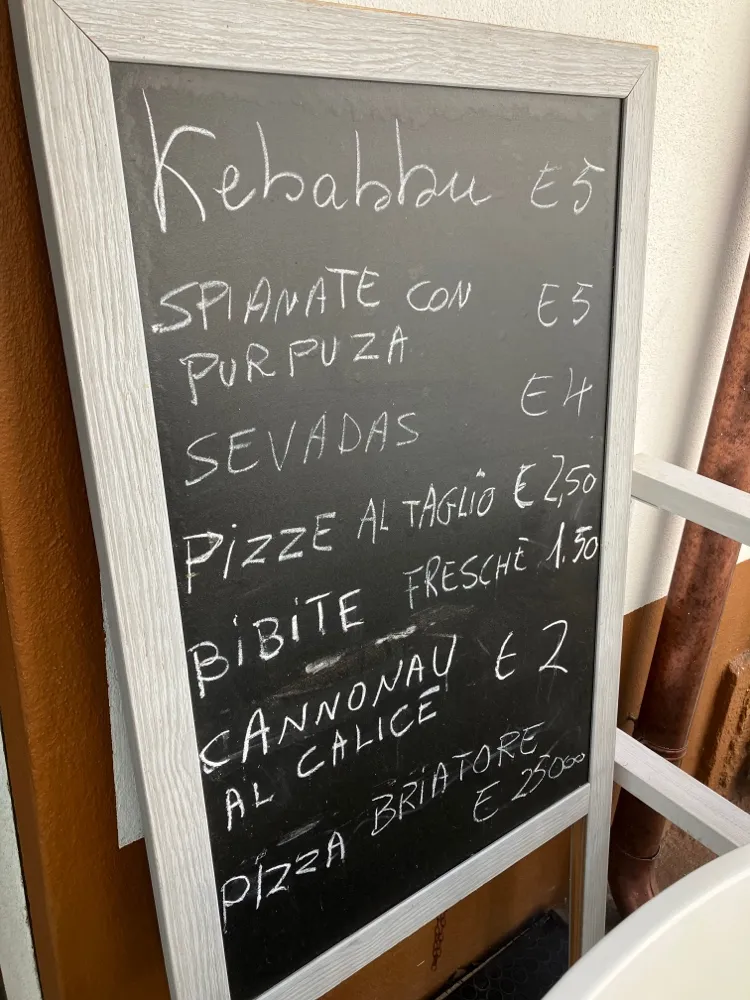 Kebabbu € 5
SPIANATE CON € 5
PURPUZA
SEVADAS € 4
PIZZE AL TAGLIO € 2,50
BIBITE FRESCHE 1.50
CANNONAU € 2
AL CALICE
PIZZA BRIATORE
€ 25000